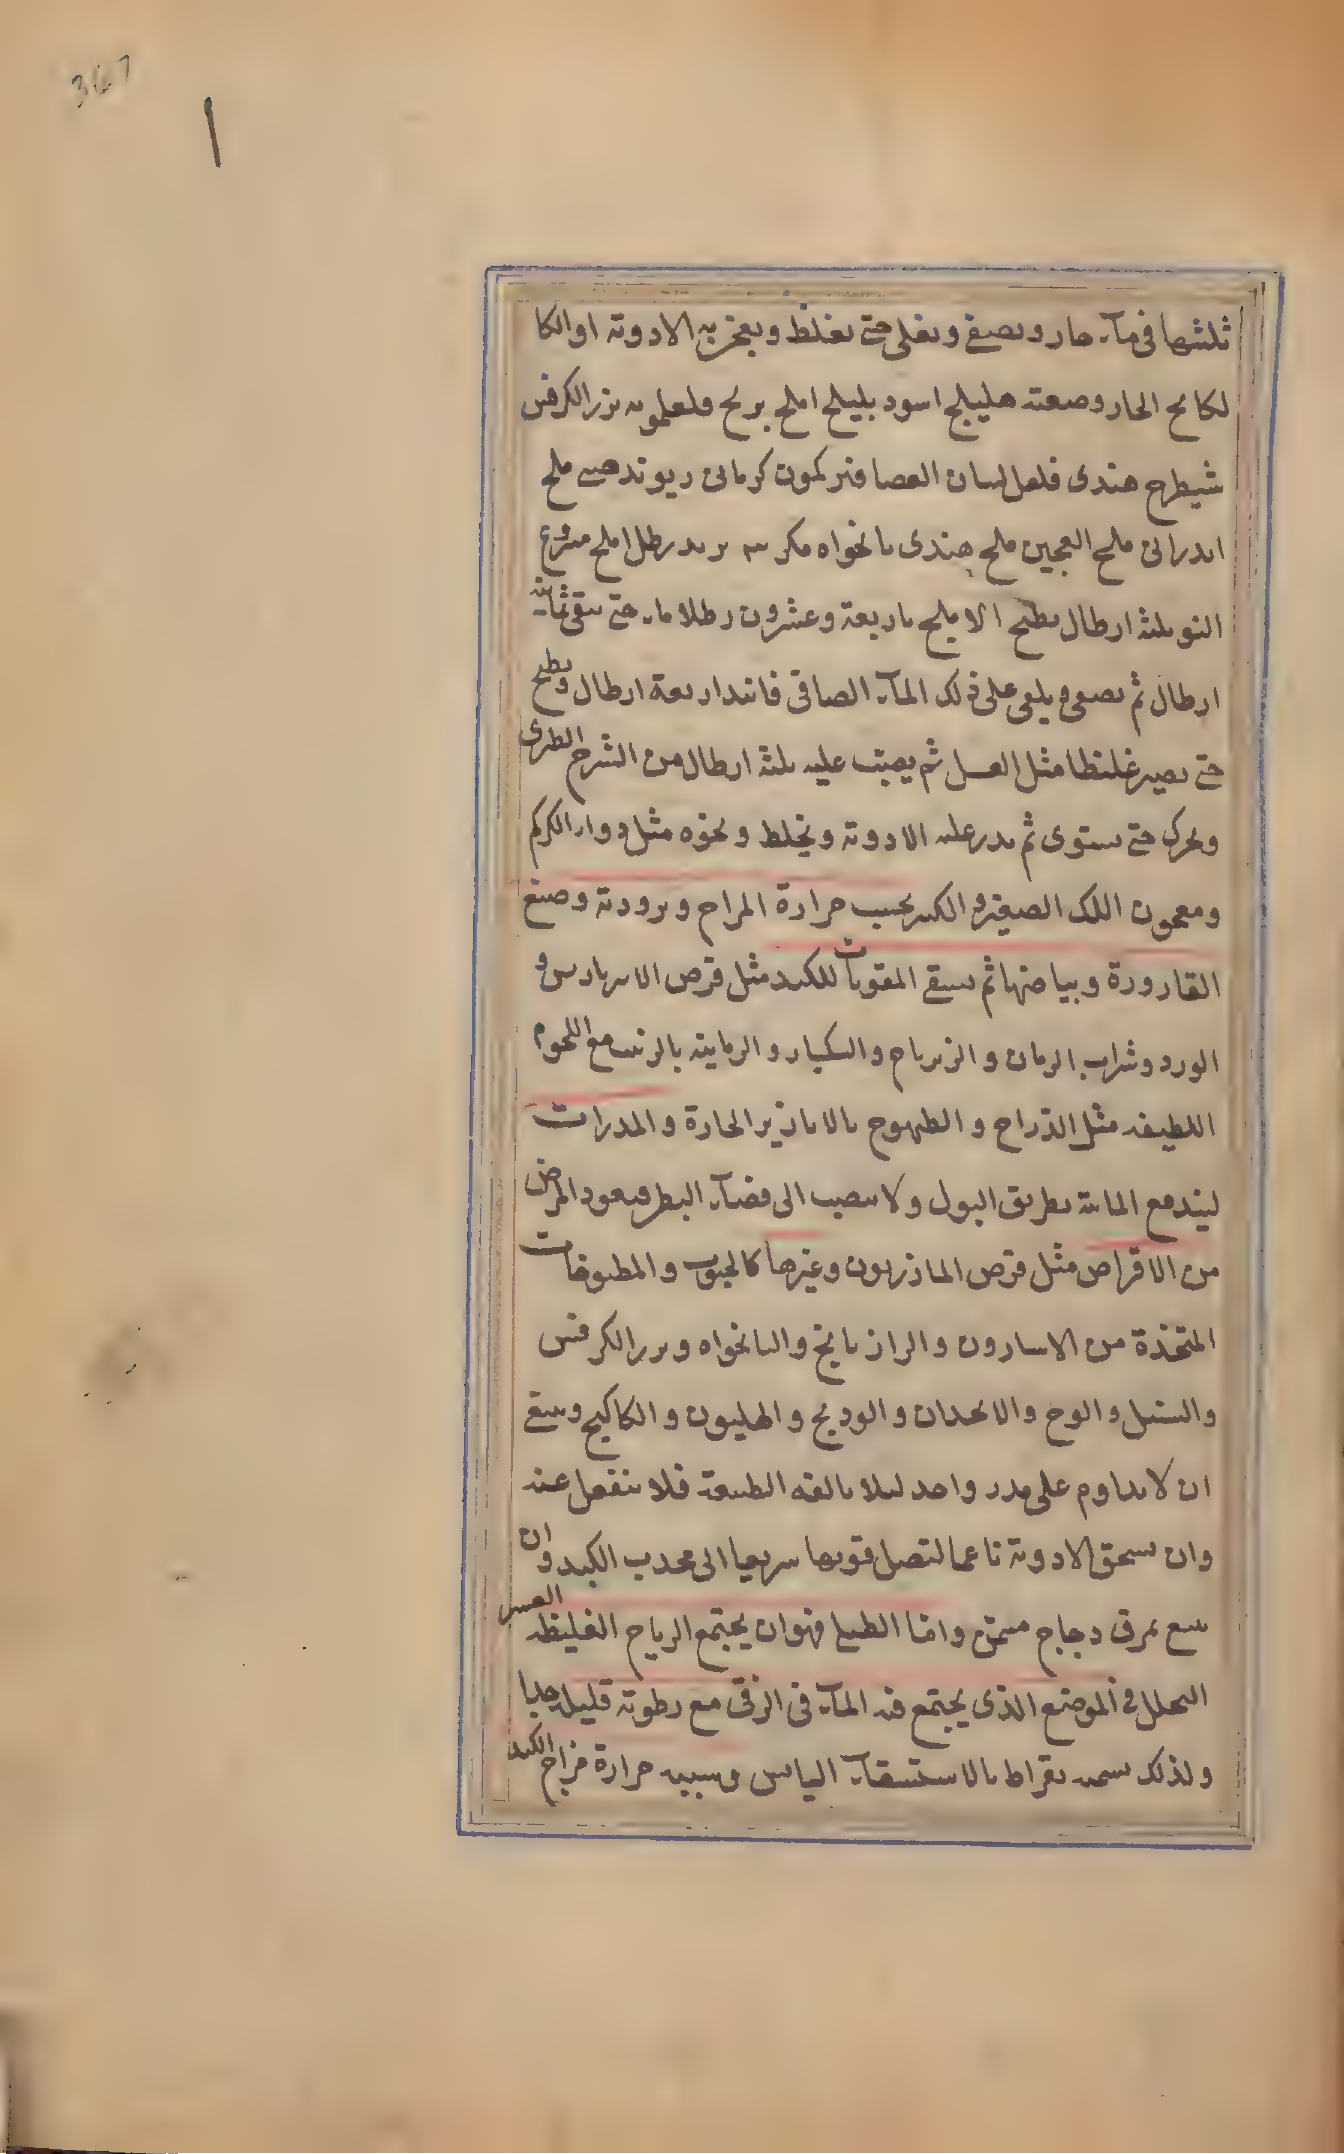 367
ا
ثلثها في مآء حار ويصفى ويغلى حتى يغلظ ويعجن به الادوية او الكا
لكانج الحار وصفته هليلج اسود بليلج املج برنج فلفلمويه بزر الكرفس
شيطرج هندى فلفل لسان العصافير كمون كرمانى ريوند صينى ملح
اندرانى ملح العجين ملح هندى نانخواه رطل املج منزوع
النو ثلثة ارطال يطبخ الاملج باربعة وعشرون رطلا ماء حتى يبقى ثمانية
ارطال ثم يصفى ويلقى على ذلك المآء الصافى فانيد اربعة ارطال ويطبخ
حتى يصير غليظا مثل العسل ثم يصب عليه ثلثة ارطال من الشيرج الطرى
ويحرك حتى يستوى ثم يذر عليه الادوية ويخلط ونحوه مثل دواء الكركم
ومعجون اللك الصغير والكبير بحسب حرارة المزاج وبرودته وصبغ
القارورة وبياضها ثم يسقى المقويات للكبد مثل قرص الامبرباريس و
الورد وشراب الرمان والزيرباج والسكباج والرمانية بالزبيب مع اللحوم
اللطيفه مثل الدراج والطيهوج بالابازير الحارة والمدرات
ليندفع المائية بطريق البول ولا ينصب الى فضآء البطن فيعود المرض
من الاقراص مثل قرص المازريون وغيرها كالحبوب والمطبوخات
المتخذة من الاسارون والرازيانج والنانخواه وبزر الكرفس
والسنبل والوج والانجدان والودنج والهليون والكاكنج وينبغى
ان لا يداوم على مدر واحد ليلا يالفه الطبيعة فلا ينفعل عنه
وان يسحق الادوية ناعما لتصل قوتها سريعا الى محدب الكبد وان
يتبع بمرق دجاج مسمن واما الطبلى فهو ان يجتمع الرياح الغليظه العسر
التحلل فى الموضع الذى يجتمع فيه المآء فى الزقى مع رطوبة قليله جدا
ولذلك يسميه بقراط بالاستسقآء اليابس وسببه حرارة مزاج الكبد